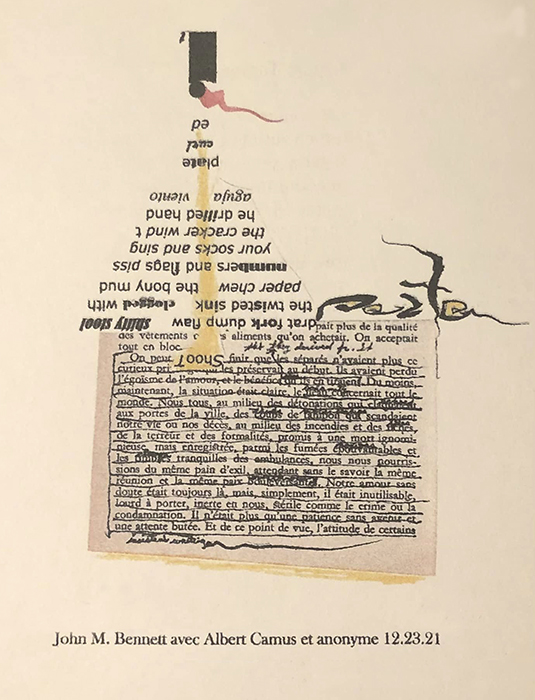 drat fork dump flaw shitty stool
the twisted sink clogged with
paper chew the bony mud
numbers and flags piss
your socks and sing
the cracker wind t
he drilled hand
aguja viento
plate
curl
ed
pait plus de la qualité
des vêtements aliments qu'on achetait. On acceptait
tout en bloc.
On peut SHOOT finir que les séparés n'avaient plus ce
curieux pri les préservait au début. Ils avaient perdu
l'égoïsme de l'amour, et le bénéfice qu'ils en tiraient. Du moins,
maintenant, la situation était claire, le fléau concernait tout le
monde. Nous tous, au milieu des détonations qui
aux portes de la ville, des coups de tampon qui scandaient
notre vie ou nos décès, au milieu des incendies et des fiches,
de la terreur et des formalités, promis à une mort ignomi-
nieuse, mais enregistrée, parmi les fumées épouvantables et
les timbres tranquilles des ambulances, nous nous nourris-
sions du même pain d'exil, attendant sans le savoir la même
réunion et la même paix Notre amour sans
doute était toujours là, mais, simplement, il était inutilisable,
lourd à porter, inerte en nous, stérile comme le crime ou la
condamnation. Il n'était plus qu'une patience sans avenir et
une attente butée. Et de ce point de vue, l'attitude de certains
John M. Bennett avec Albert Camus et anonyme 12.23.21